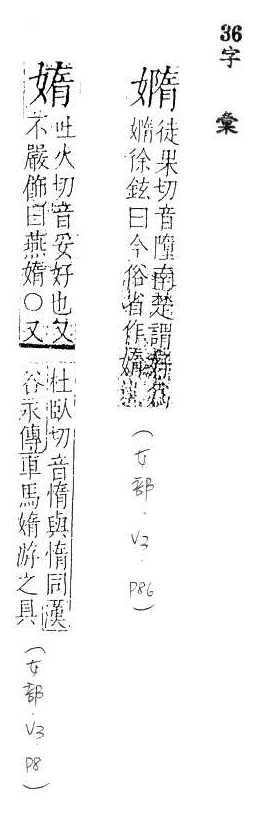 36
字彙
嫷
徒果切音墮南楚謂好為
嫷徐鉉曰今俗省作媠
（女部．V3．P86）
媠
吐火切音妥好也又
不嚴飾曰燕媠〇又
杜臥切音惰與惰同漢
谷永傳車馬媠游之具
（女部．V3．P8）